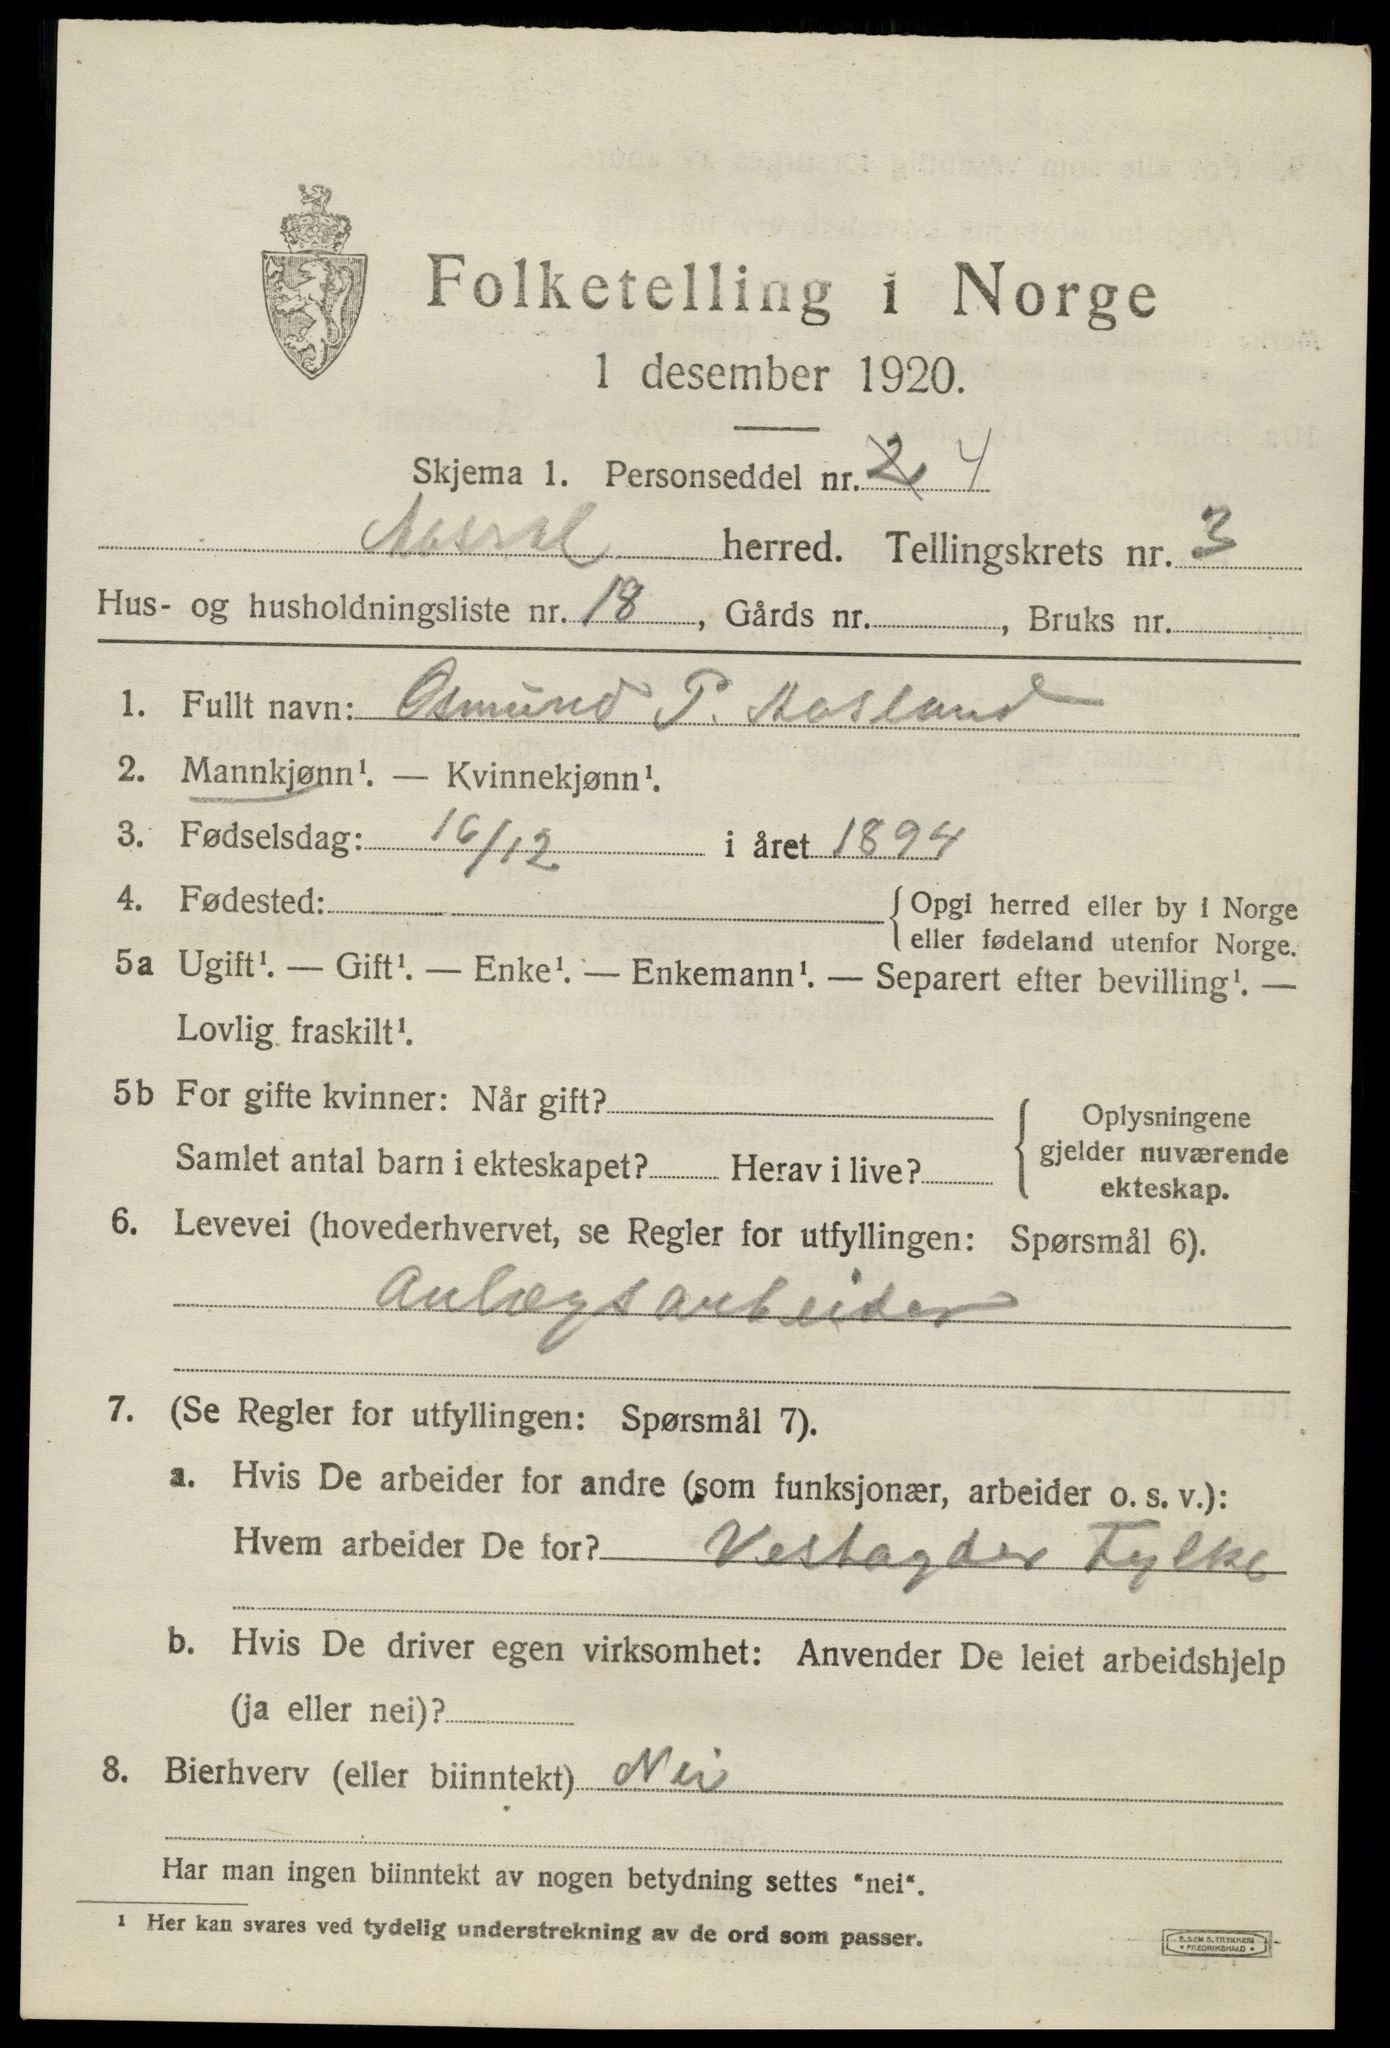 Folketelling i Norge
1 desember 1920.
Skjema 1. Personseddel nr. 2 4
Aaseral herred. Tellingskrets nr. 3
Hus- og husholdningsliste nr. 18, Gårds nr. , Bruks nr.
1. Fullt navn: Osmund P. Aasland
2. Mannkjønn¹. — Kvinnekjønn¹.
3. Fødselsdag: 16/12 i året 1894
4. Fødested: { Opgi herred eller by i Norge
eller fødeland utenfor Norge.
5a Ugift¹. — Gift¹. — Enke¹. — Enkemann¹. — Separert efter bevilling¹. —
Lovlig fraskilt¹.
5b For gifte kvinner: Når gift?
Samlet antal barn i ekteskapet? Herav i live?
{ Oplysningene
gjelder nuværende
ekteskap.
6. Levevei (hovederhvervet, se Regler for utfyllingen: Spørsmål 6).
Anlægsarbeider
7. (Se Regler for utfyllingen: Spørsmål 7).
a. Hvis De arbeider for andre (som funksjonær, arbeider o. s. v.):
Hvem arbeider De for? Vestagder Fylke
b. Hvis De driver egen virksomhet: Anvender De leiet arbeidshjelp
(ja eller nei)?
8. Bierhverv (eller biinntekt) Nei
Har man ingen biinntekt av nogen betydning settes "nei".
¹ Her kan svares ved tydelig understrekning av de ord som passer.
E. SEM S. TRYKKERI
• FREDRIKSHALD •